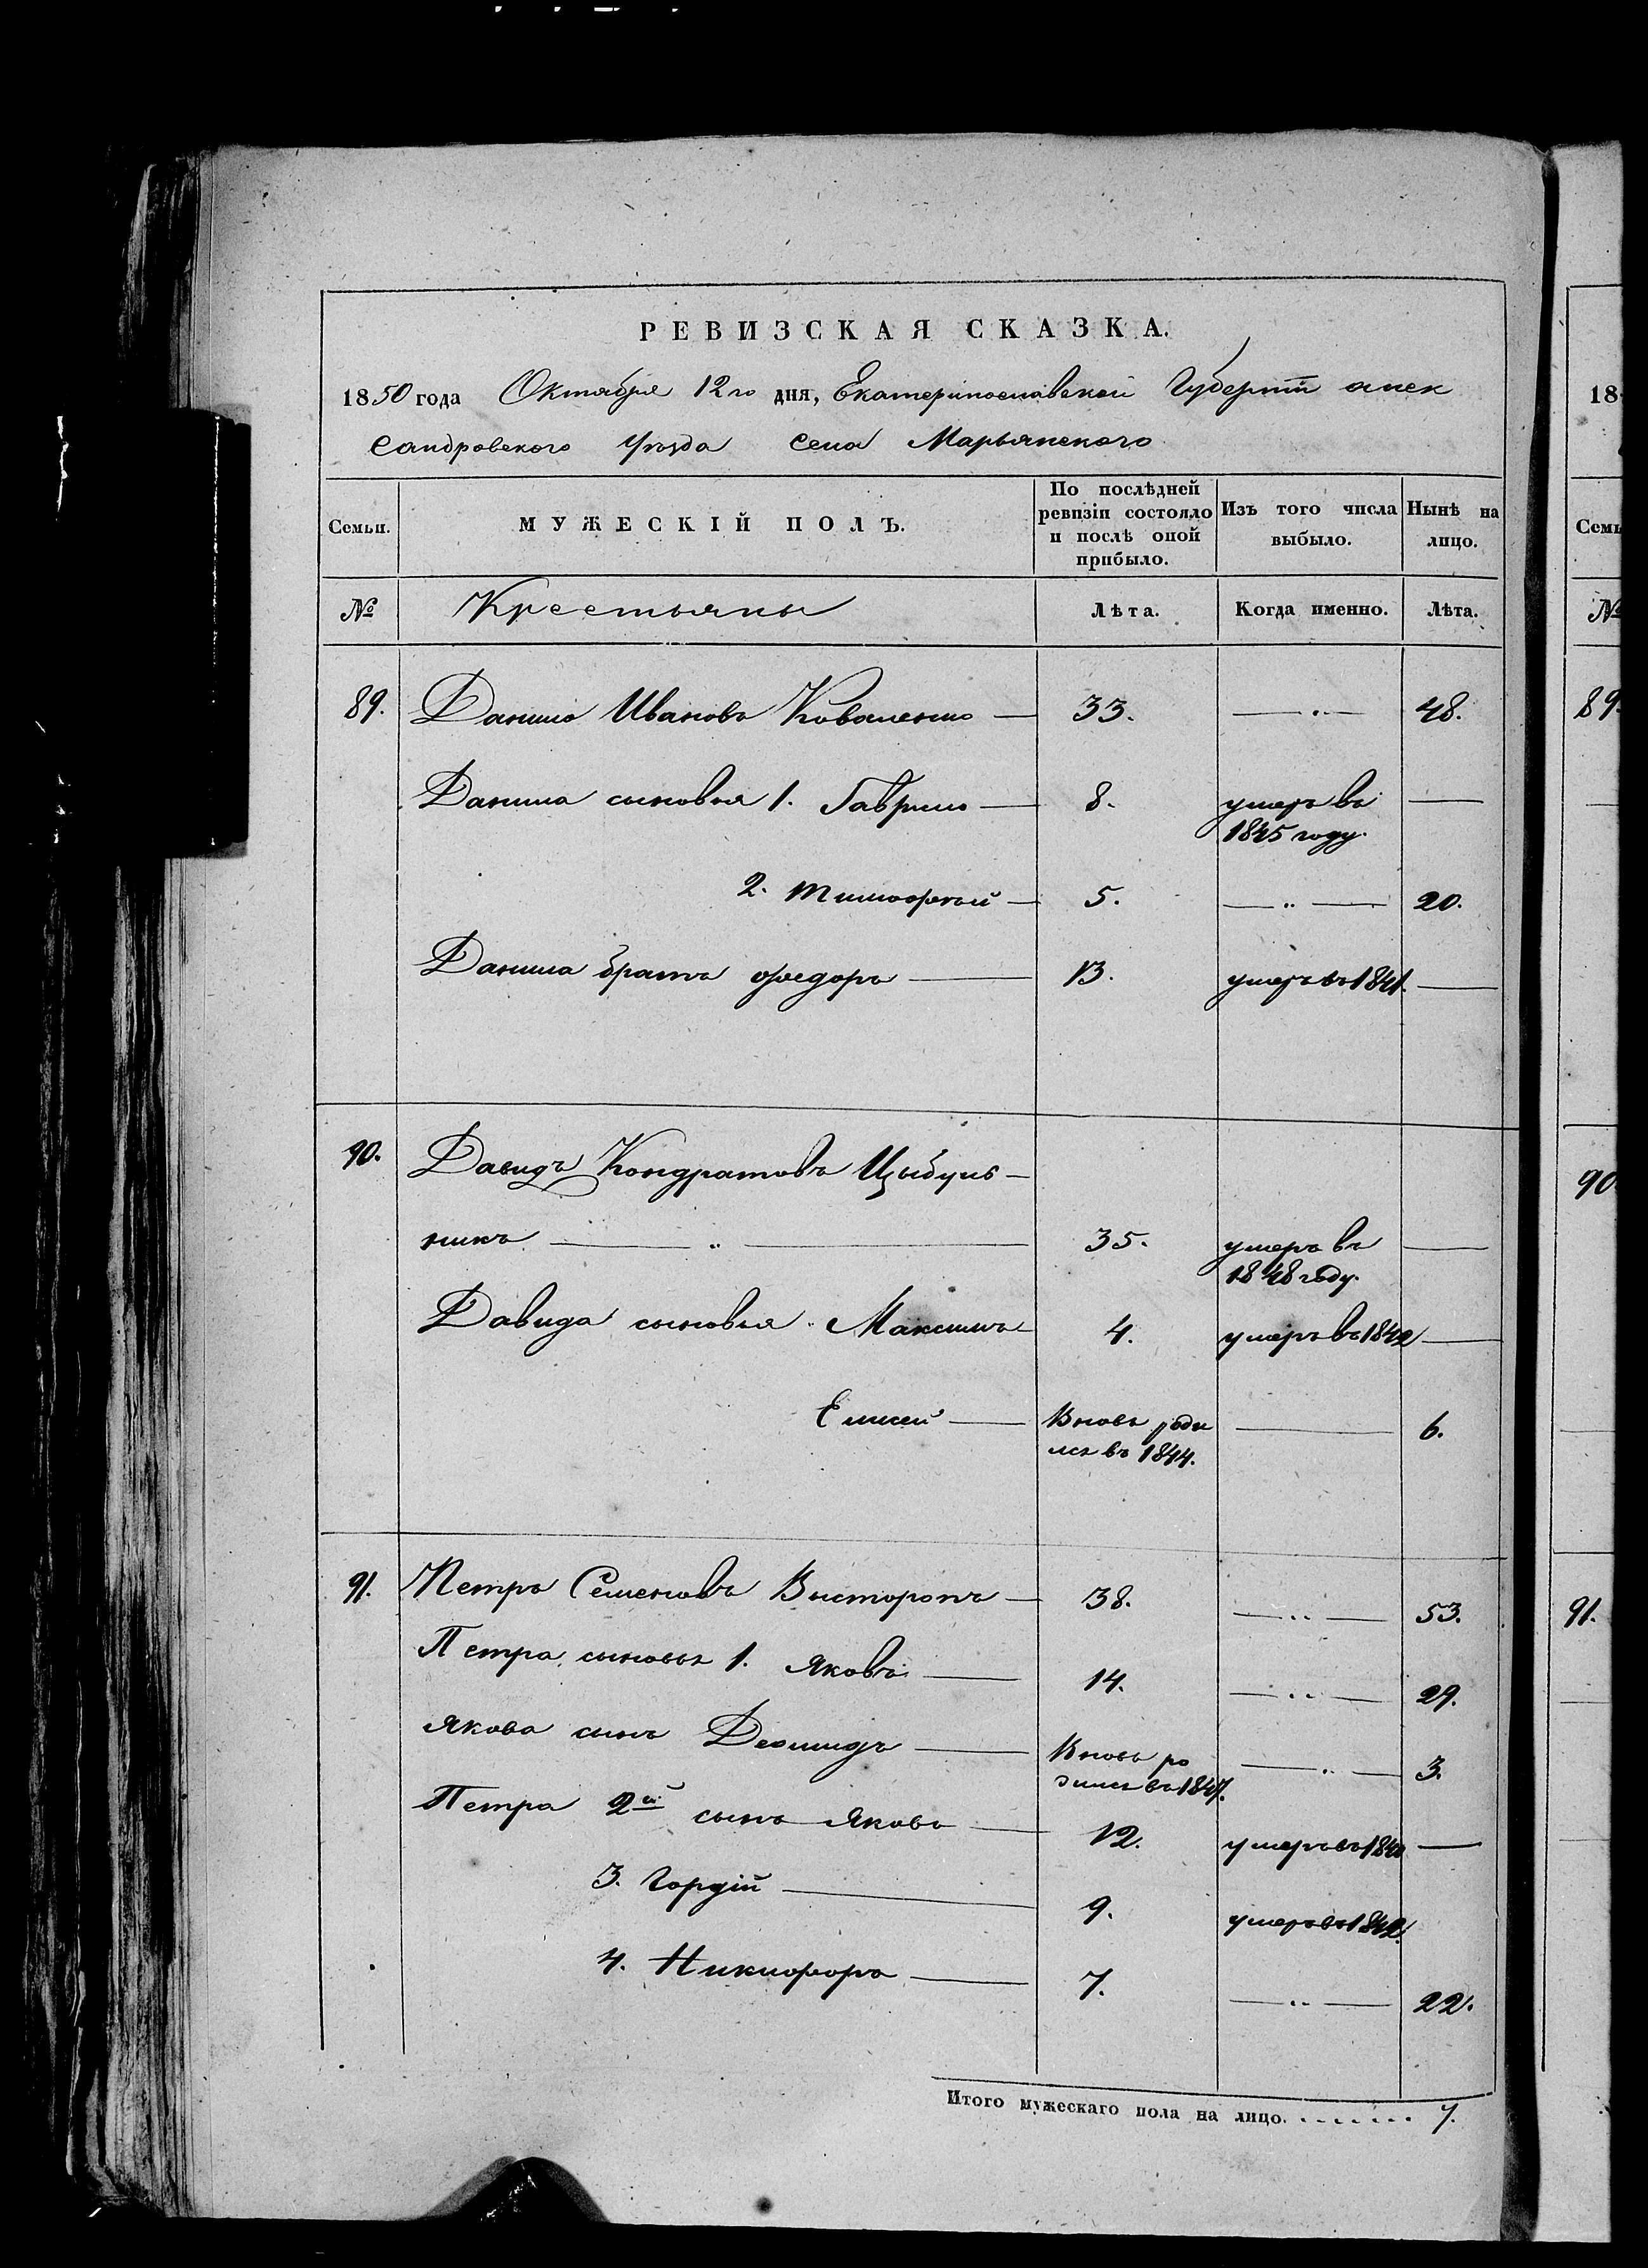 РЕВИЗСКАЯ СКАЗКА.
1850 года Октября 12го дня, Екатеринославской Губерніи алек
сандровского Уѣзда Села Марьянского
Семьи. МУЖЕСКІЙ ПОЛЪ. По послѣдней ревизіи состояло и послѣ оной прибыло. Изъ того числа выбыло. Нынѣ на лицо.
№ Крестьяны Лѣта. Когда именно. Лѣта.
89. Данило Ивановъ Коваленко — 33. — " — 48.
Данила сыновья 1. Гаврило — 8. умеръ въ 1845 году. —
2. Тимофѣй — 5. — " — 20.
Данила братъ Федоръ — 13. умеръ въ 1841. —
90. Давидъ Кондратовъ Цыбуль-
никъ — " — 35. умеръ въ 1848 году. —
Давида сыновья Максимъ 4. умеръ въ 1842 —
Елисей — Вновь роди лся въ 1844. — 6.
91. Петръ Семеновъ Висторопъ — 38. — " — 53.
Петра сыновья 1. Яковъ — 14. — " — 29.
Якова сынъ Деомидъ — Вновь ро дился въ 1847. — " — 3.
Петра 2й сынъ Яковъ — 12. умеръ въ 1840 —
3. Гордій — 9. умеръ въ 1842.
4. Никифоръ — 7. — " — 22.
Итого мужескаго пола на лицо. . . . . . . . 7.
18
Семь
№
89.
90
91.